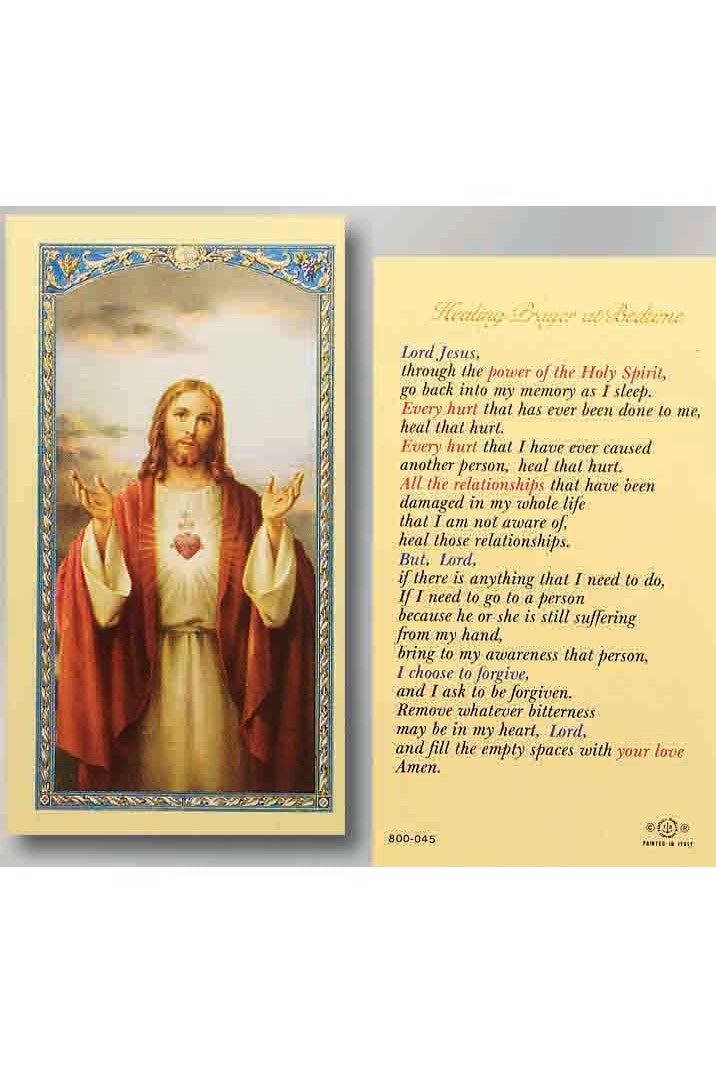 Healing Prayer at Bedtime
Lord Jesus,
through the power of the Holy Spirit,
go back into my memory as I sleep.
Every hurt that has ever been done to me,
heal that hurt.
Every hurt that I have ever caused
another person, heal that hurt.
All the relationships that have been
damaged in my whole life
that I am not aware of,
heal those relationships.
But, Lord,
if there is anything that I need to do,
If I need to go to a person
because he or she is still suffering
from my hand,
bring to my awareness that person,
I choose to forgive,
and I ask to be forgiven.
Remove whatever bitterness
may be in my heart, Lord,
and fill the empty spaces with your love
Amen.
800-045
© ®
PRINTED IN ITALY